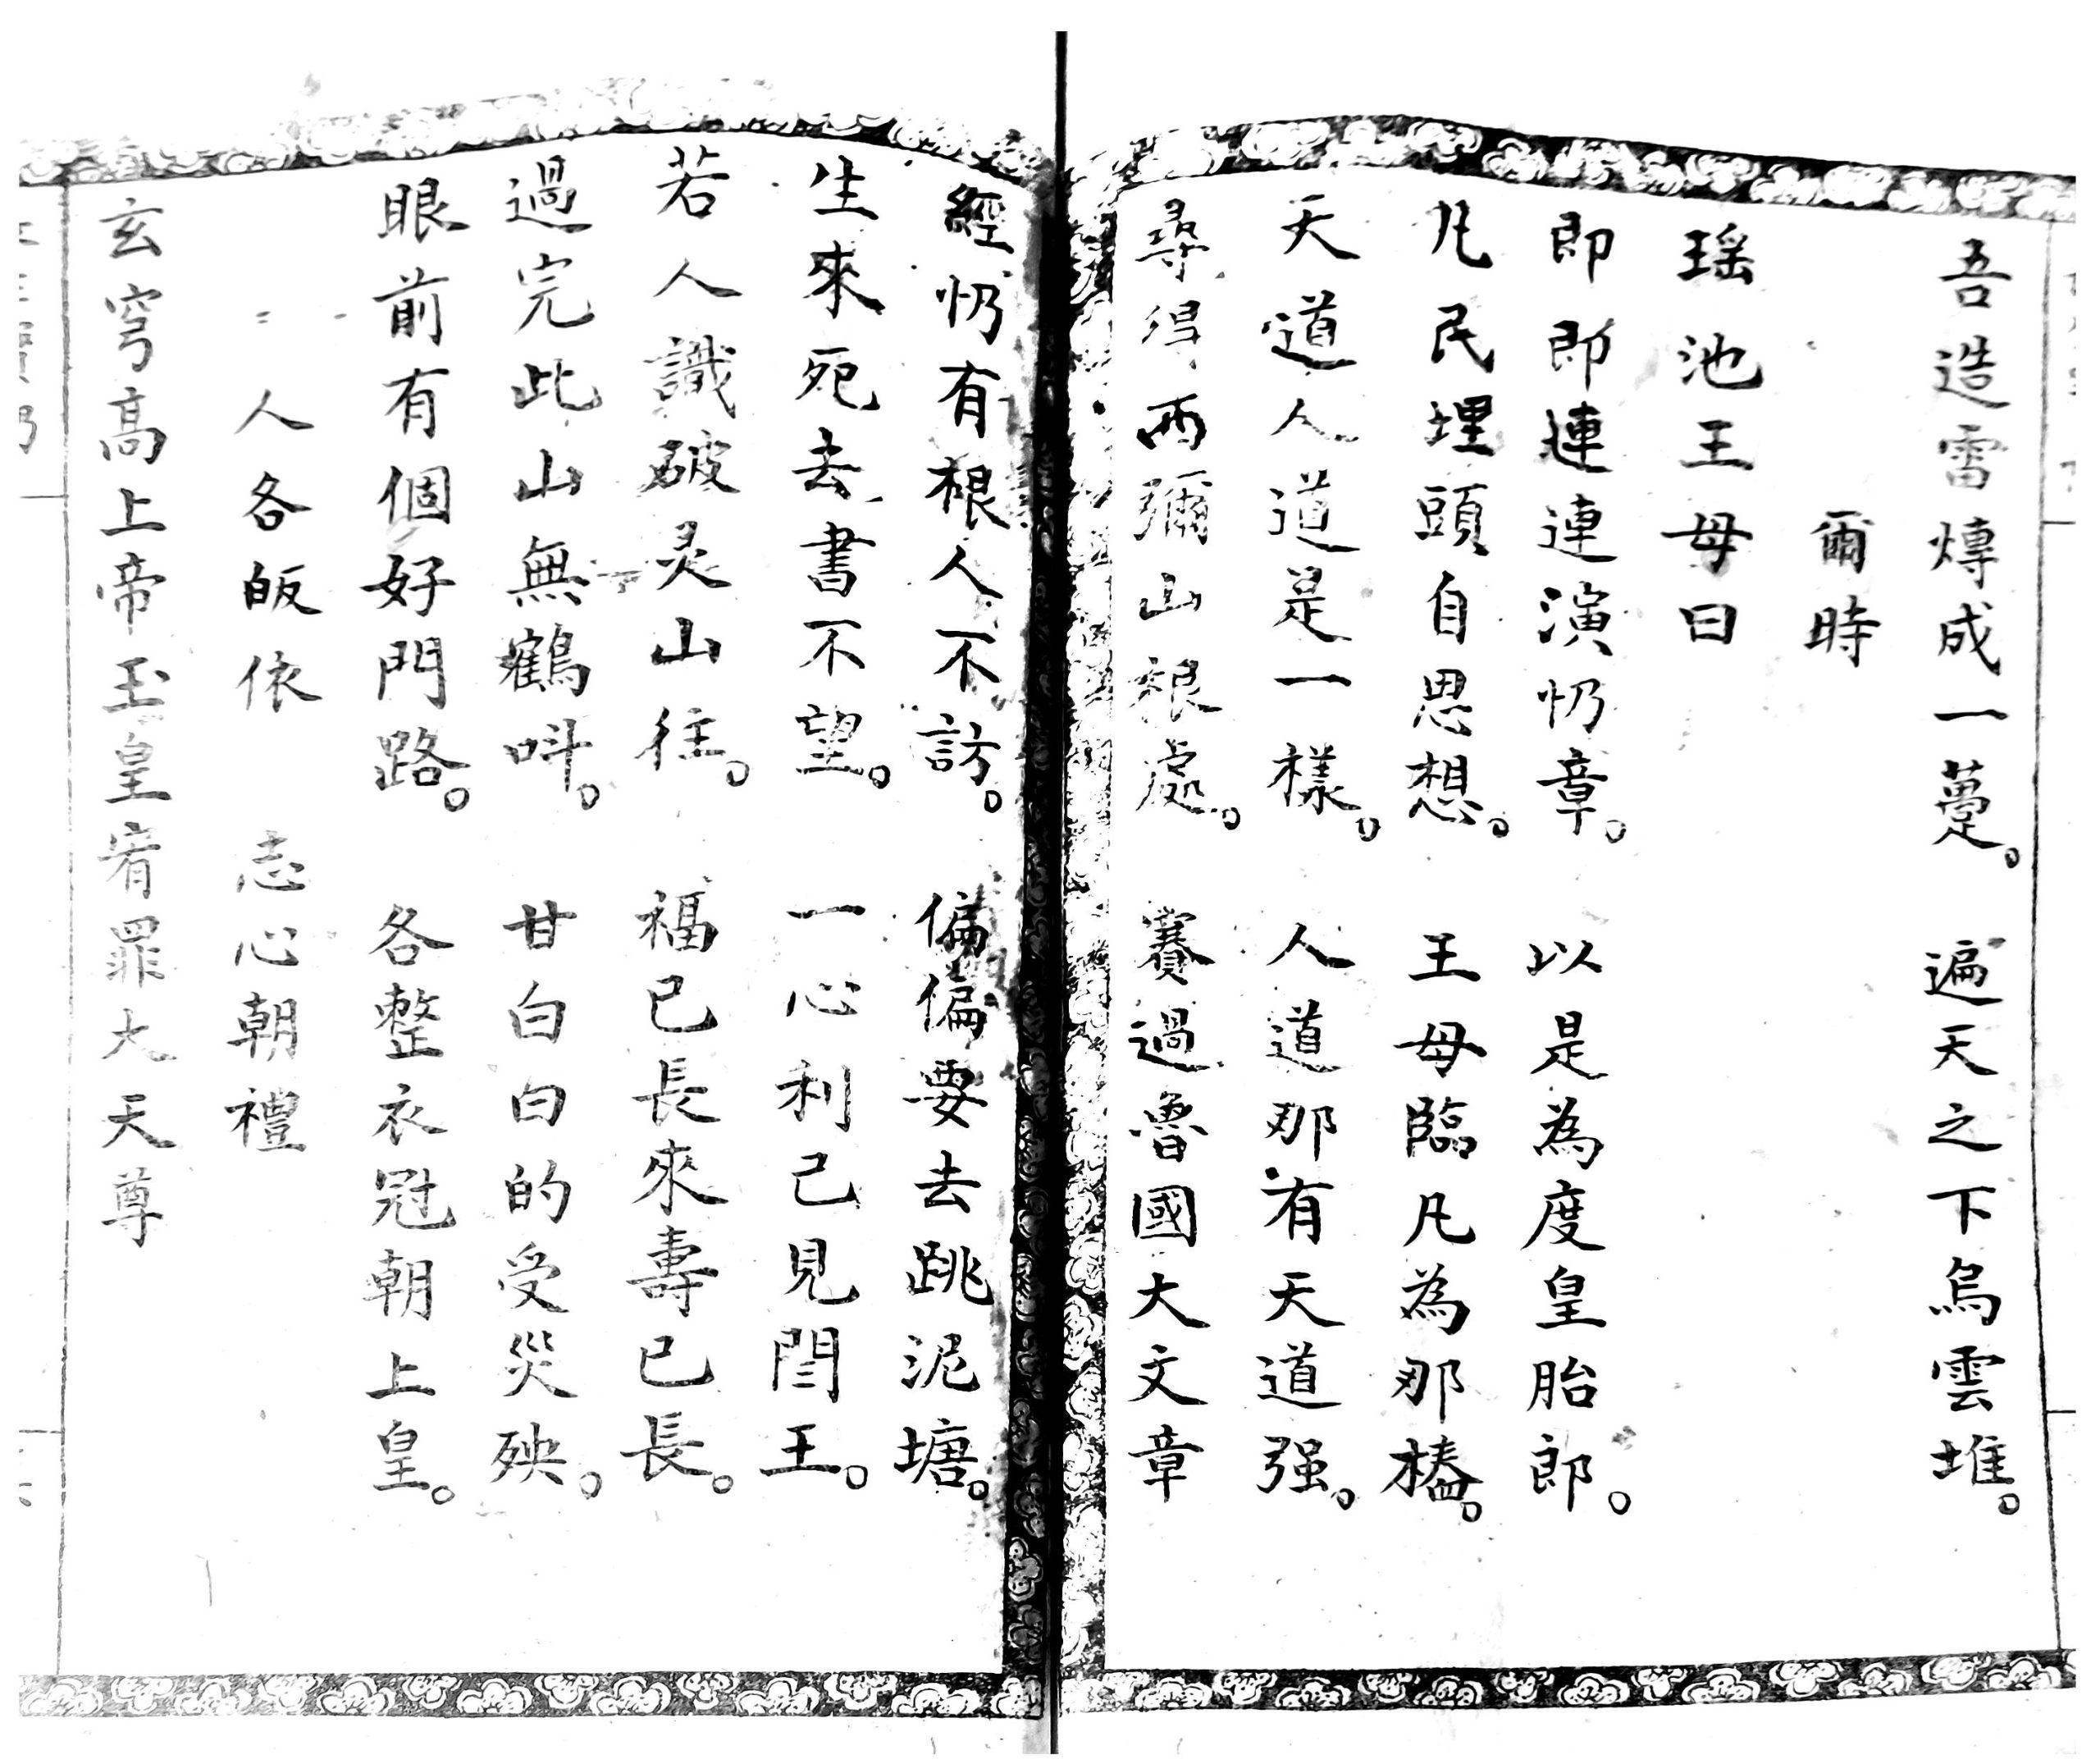 吾造雷煿成一躉。　遍天之下烏雲堆。
爾時
瑶池王母曰
即即連連演忉章。　以是為度皇胎郎。
凡民埋頭自思想。　王母臨凡為那樁。
天道人道是一樣。　人道那有天道强。
尋得西彌山根處。　賽過魯國大文章
經忉有根人不訪。　偏偏要去跳泥塘。
生來死去書不望。　一心利己見閆王。
若人識破灵山往。　福已長來壽已長。
過完此山無鶴呌。　甘白白的受災殃。
眼前有個好門路。　各整衣冠朝上皇。
人各皈依　志心朝禮
玄穹高上帝玉皇宥罪大天尊